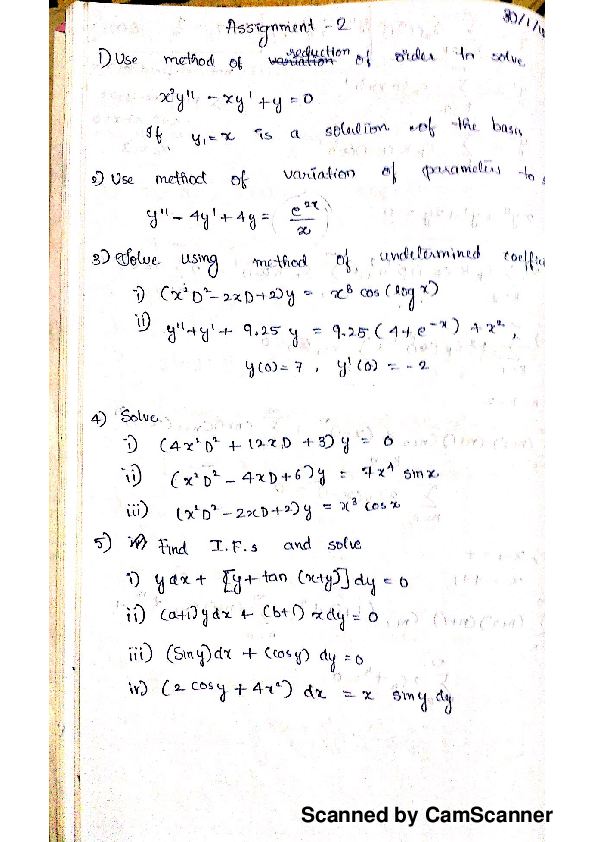 Assignment - 2
30/1/
1) Use method of variation reduction of order to solve
x²y'' - xy' + y = 0
If y₁ = x is a solution of the basis
2) Use method of variation of parameters to
y'' - 4y' + 4y = e²ˣ/x
3) Solve using method of undetermined coeffi
i) (x²D² - 2xD + 2)y = x³ cos (log x)
ii) y'' + y' + 9.25 y = 9.25 (4 + e⁻ˣ) + x²,
y(0) = 7, y'(0) = -2
4) Solve
i) (4x²D² + 12xD + 3) y = 0
ii) (x²D² - 4xD + 6)y = 7x⁴ sin x
iii) (x²D² - 2xD + 2)y = x³ cos x
5) Find I.F.s and solve
i) y dx + [y + tan (x+y)] dy = 0
ii) (a+1)y dx + (b+1) x dy = 0
iii) (Sin y)dx + (cos y) dy = 0
iv) (2 cos y + 4x²) dx = x sin y dy
Scanned by CamScanner